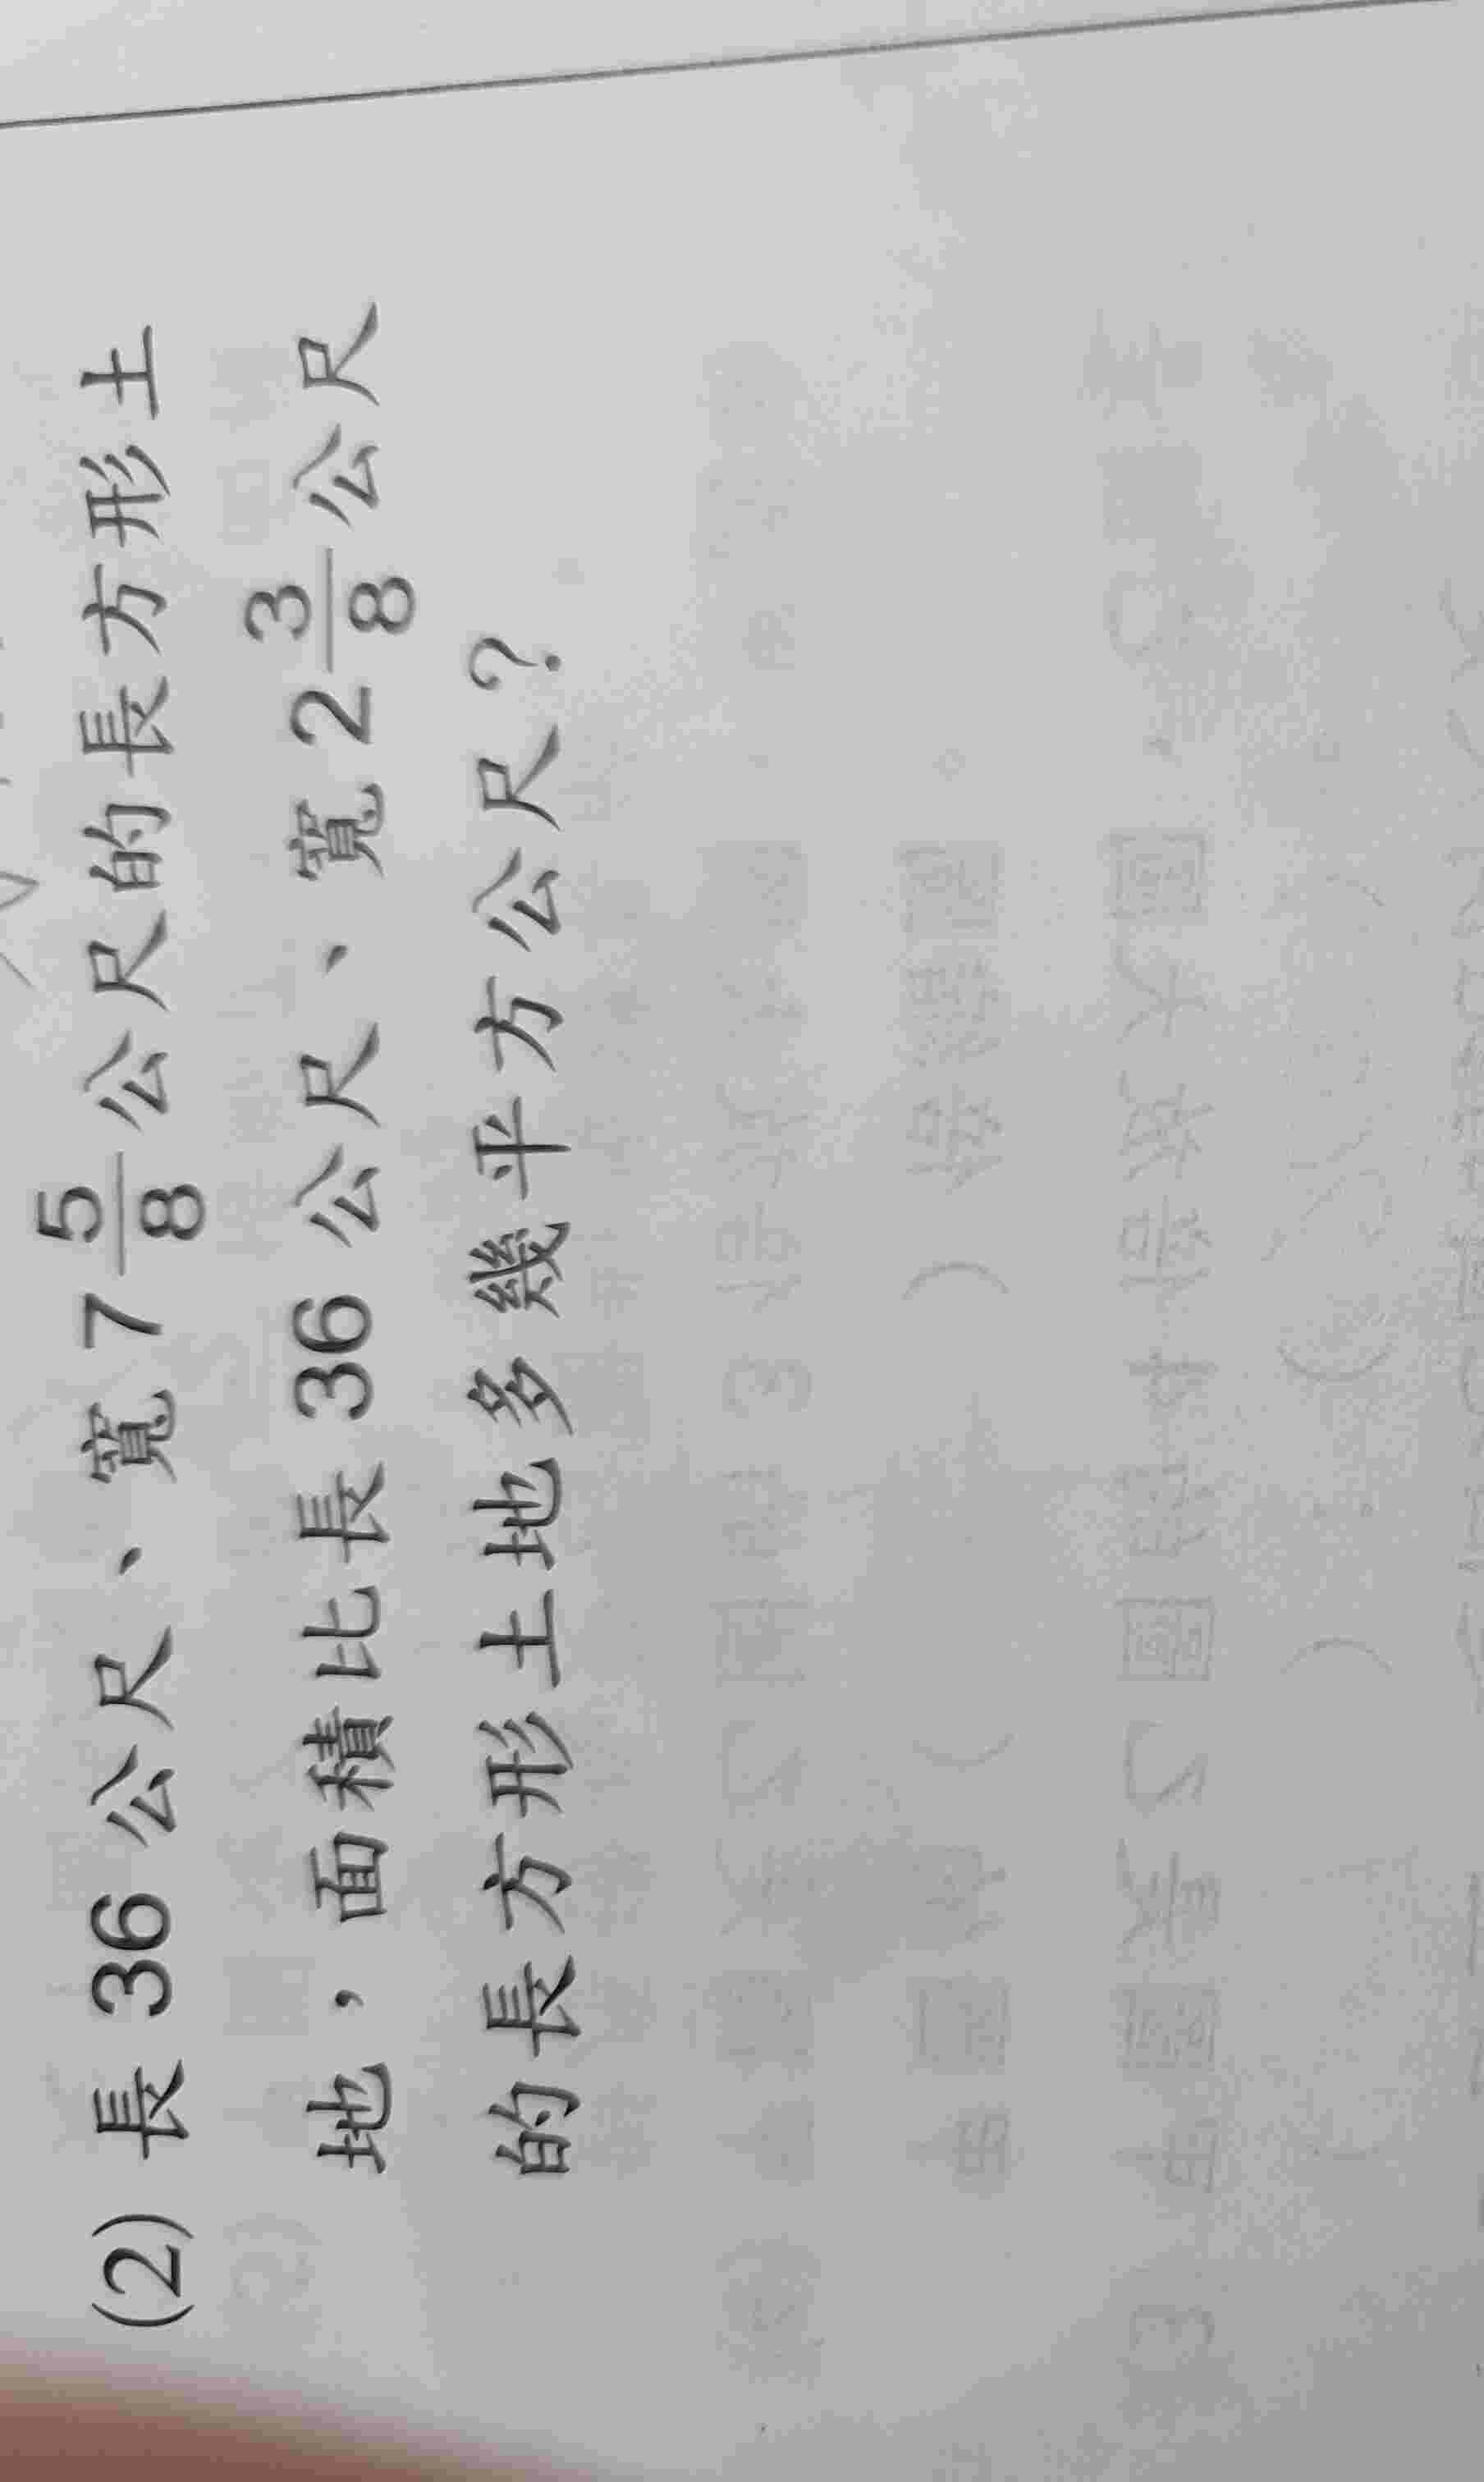 (2) 長 36 公尺、寬 7 5/8 公尺的長方形土
地，面積比長 36 公尺、寬 2 3/8 公尺
的長方形土地多幾平方公尺？